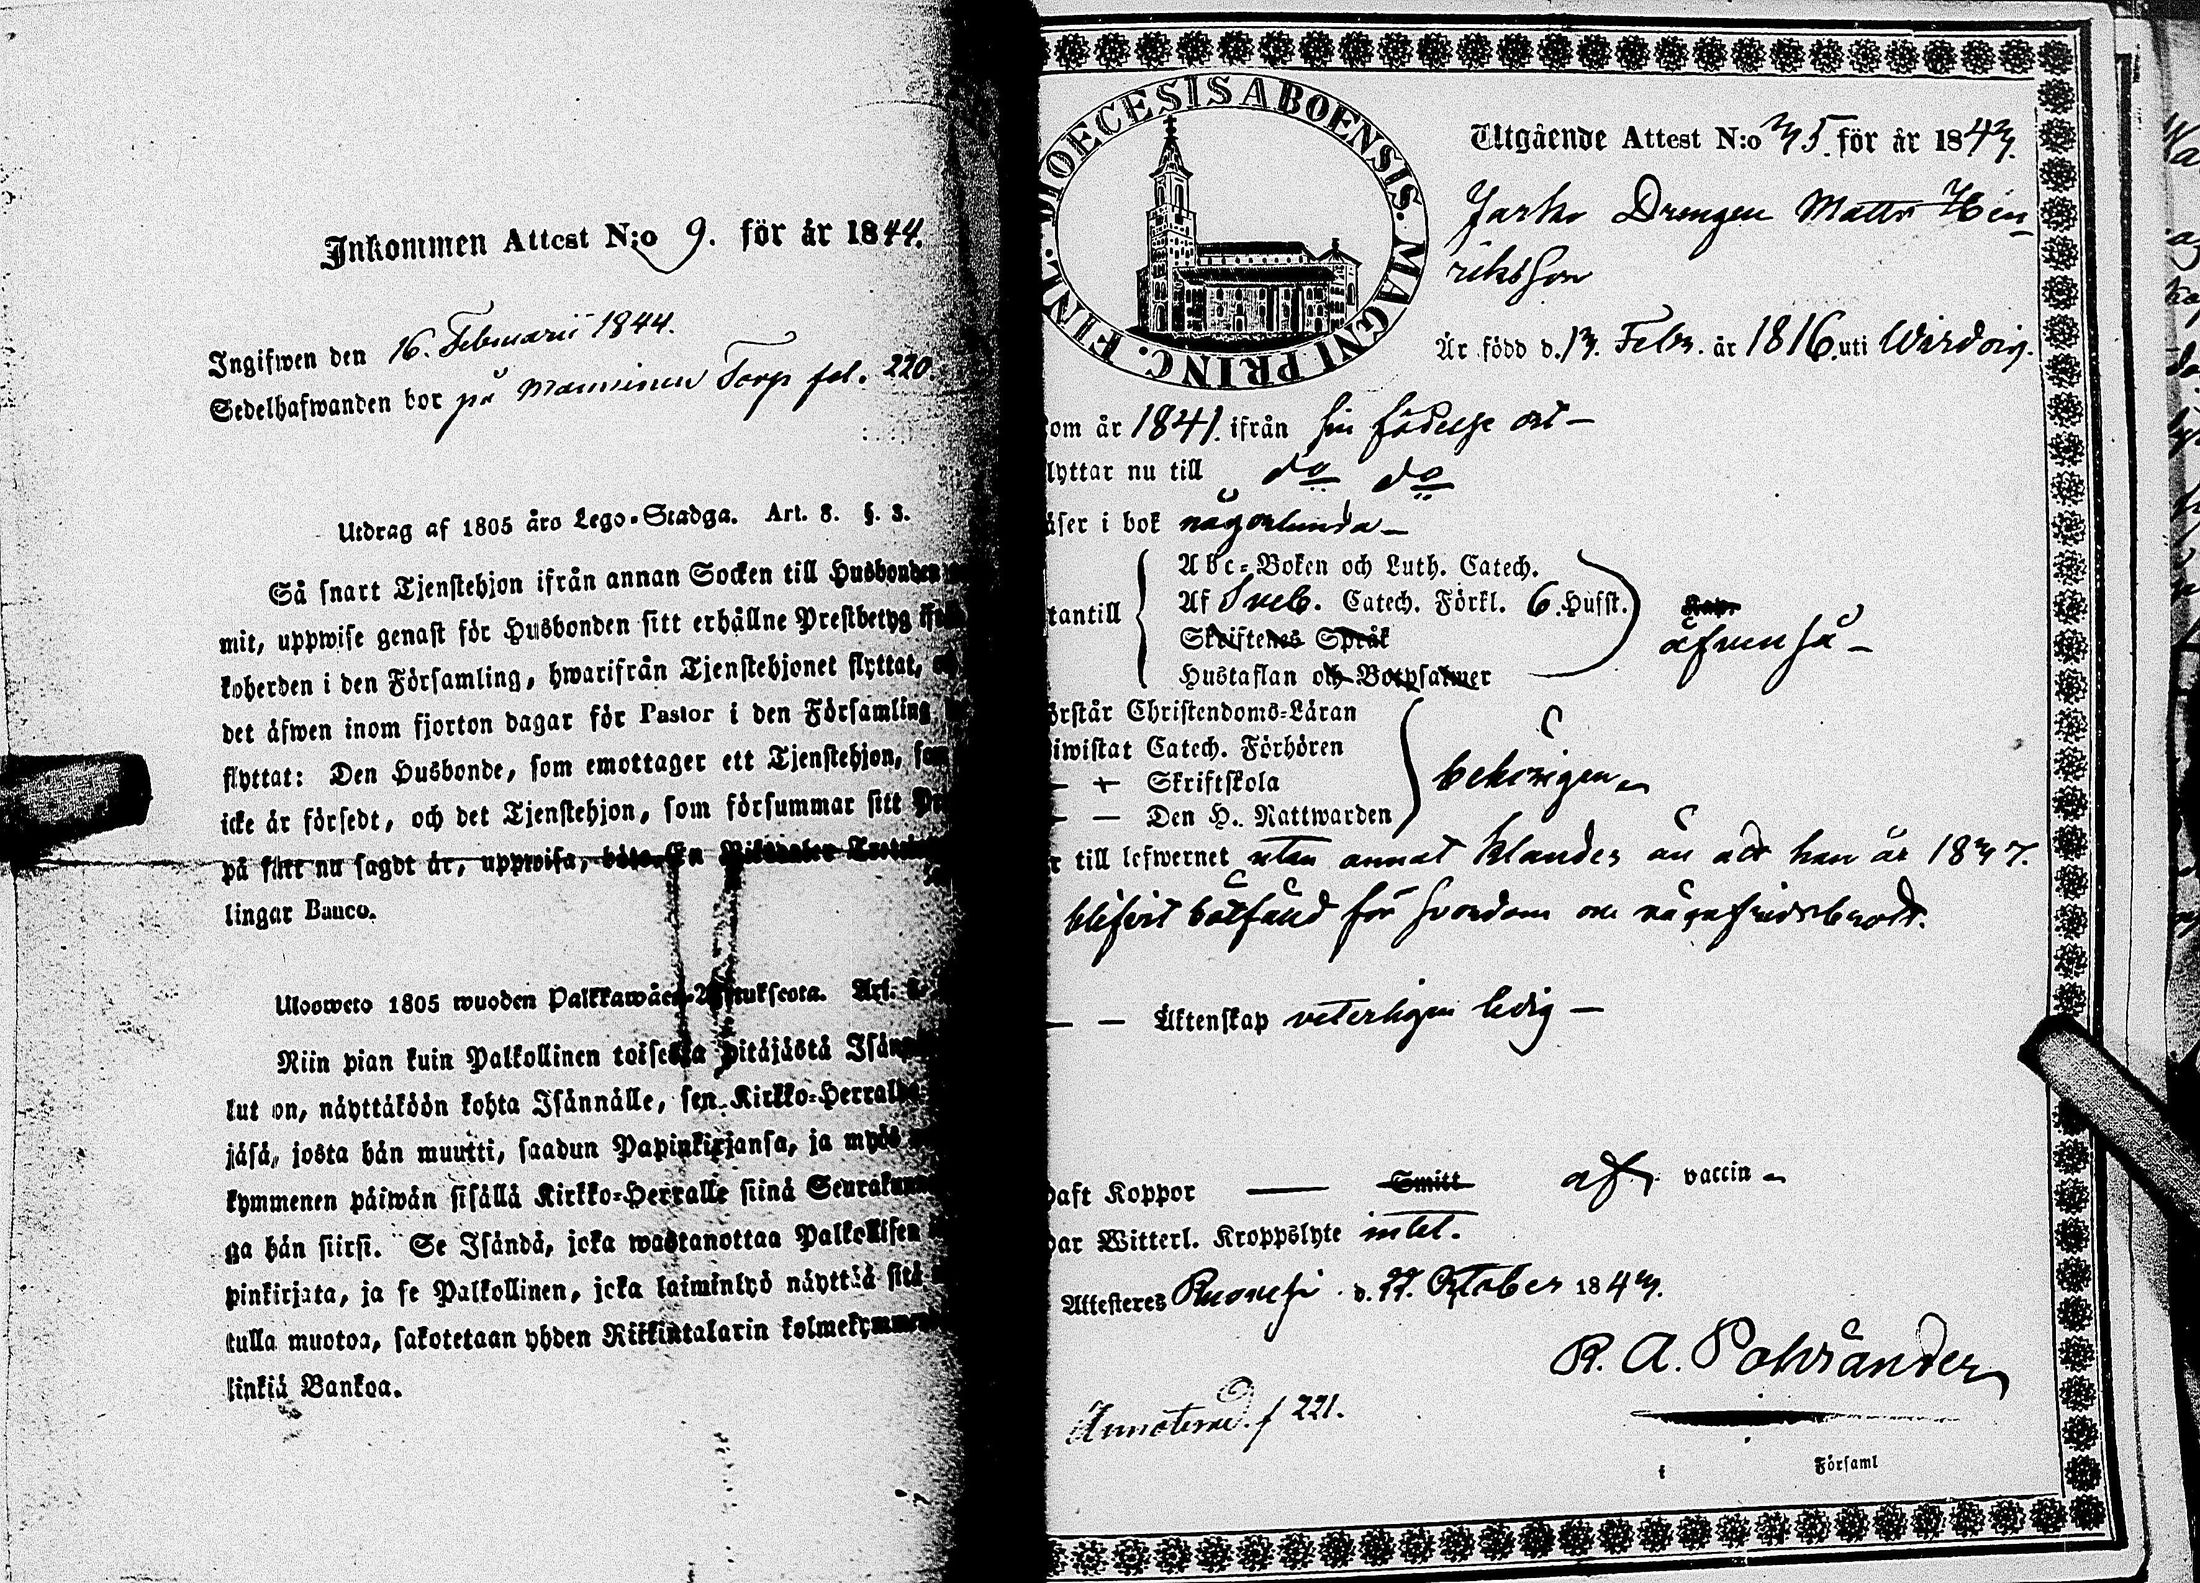 Inkommen Attest N:o 9. för år 1844.
Ingifwen den 16. Februarii 1844.
Sedelhafwanden bor på Manninen Torp fol. 220.
Utdrag af 1805 års Lego-Stadga. Art. 8. §. 3.
Så snart Tjenstehjon ifrån annan Socken till Husbonden
mit, uppwise genast för Husbonden sitt erhållne Prestbetyg
koherden i den Församling, hwarifrån Tjenstehjonet flyttat,
det äfwen inom fjorton dagar för Pastor i den Församling
flyttat: Den Husbonde, som emottager ett Tjenstehjon, som
icke är försedt, och det Tjenstehjon, som försummar sitt
på sätt nu sagdt är, uppwisa, böte En Riksdaler
lingar Banco.
Ulosweto 1805 wuoden Palkkawäen-Asetuksesta. Art.
Niin pian kuin Palkollinen toisesta pitäjästä
lut on, näyttäköön kohta Isännälle, sen Kirkko-Herralta
jäsä, josta hän muutti, saadun Papinkirjansa, ja myös
kymmenen päiwän sisällä Kirkko-Herralle siinä
ga hän siirsi. Se Isändä, joka wastanottaa Palkollisen
pinkirjata, ja se Palkollinen, joka laiminlyö näyttää sitä
tulla muotoa, sakotetaan yhden Riikintalarin
linkiä Bankoa.
FINL. DIOECESIS ABOENSIS. MAGNI PRINC.
Utgående Attest N:o 35. för år 1843.
Drengen Matts Hin-
riksson
Är född d. 13. Febr. år 1816. uti Wirdois.
om år 1841. ifrån sin födelse ort –
lyttar nu till do do
äser i bok någorlunda –
Abc-Boken och Luth. Catech.
tantill Af Sveb. Catech. Förkl. 6. Husst.
äfven så –
Skriftenes Språk
Hustaflan och Botpsalmer
örstår Christendoms-Läran
iwistat Catech. Förhören
– + Skriftskola
behörigen
– – Den H. Nattwarden
r till lefwernet utan annat klander än att han år 1837.
blifvit bötfäld för svordom
– – Äktenskap veterligen ledig –
haft Koppor Smitt af vaccin
har Witterl. Kroppslyte intet.
Attesteres Ruovesi d. 22. October 1843.
R. A. Polviander
Annoterad. f 221.
i Församl